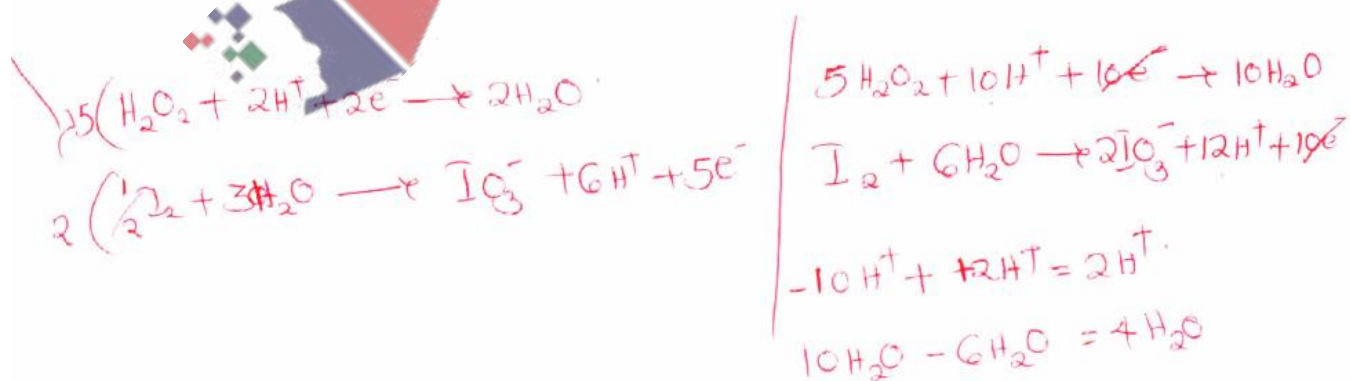 5(H₂O₂ + 2H⁺ + 2e⁻ → 2H₂O
2(½I₂ + 3H₂O → IO₃⁻ + 6H⁺ + 5e⁻
5H₂O₂ + 10H⁺ + 10e⁻ → 10H₂O
I₂ + 6H₂O → 2IO₃⁻ + 12H⁺ + 10e⁻
-10H⁺ + 12H⁺ = 2H⁺
10H₂O - 6H₂O = 4H₂O